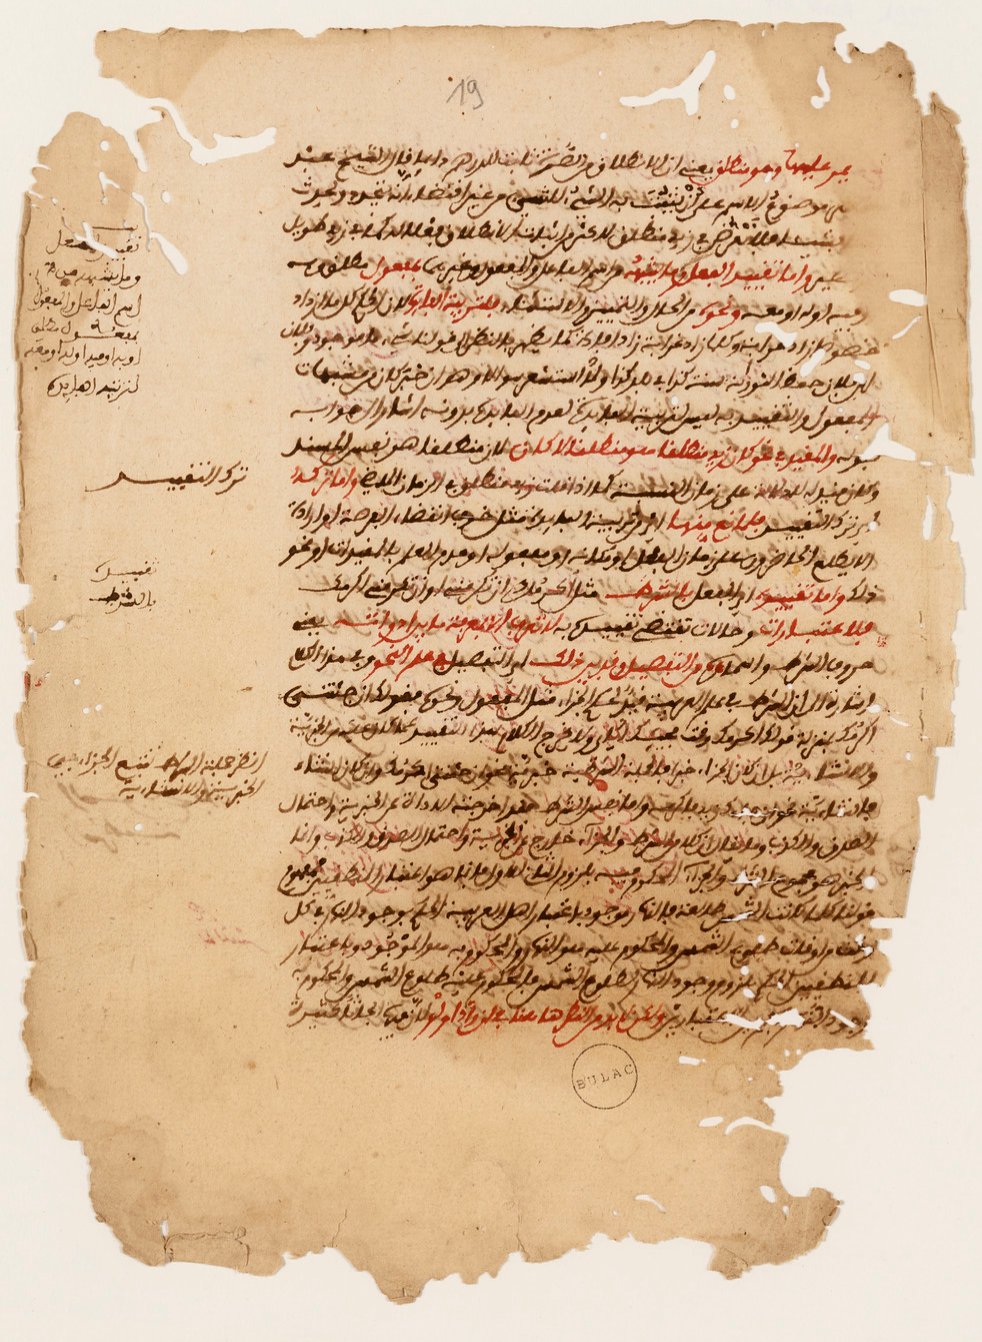 عليها وهو منطلق يعني ان الانطلاق من الصرة ثابت للدرهم دايما قال الشيخ عبد
موضوع الاسم على أن يثبت به الشيء للشيء من غير اقتضاء انه يتجدد ويحدث
فلا تعرض في زيد منطلق لاكثر من اثبات الانطلاق فعلا له كما في زيد طويل
واما تقييد الفعل وما يشبهه من اسم الفاعل والمفعول وغيرهما بمفعول مطلق او به
او فيه او له او معه ونحوه من الحال والتمييز والاستثناء فلتربية الفايدة لان الحكم كلما زاد
خصوصا زاد غرابة وكلما زاد غرابة زاد افادة كما يظهر بالنظر الى قولنا شيء ما موجود وفلان
ابن فلان حفظ التوراة سنة كذا في بلد كذا ولما استشعر سوالا وهو ان خبر كان من مشبهات
المفعول والتقييد به ليس لتربية الفايدة لعدم الفايدة بدونه اشار الى جوابه
بقوله والمقيد في نحو كان زيد منطلقا هو منطلقا لا كان لان منطلقا هو نفس المسند
وكان قيد له للدلالة على زمان النسبة كما اذا قلت زيد منطلق في الزمان الماضي واما تركه
اي ترك التقييد فلمانع منها اي من تربية الفايدة مثل خوف انقضاء الفرصة او ارادة
ان لا يطلع الحاضرون على زمان الفعل او مكانه او مفعوله او عدم العلم بالمقيدات او نحو
ذلك واما تقييده اي الفعل بالشرط مثل اكرمك ان تكرمني او ان تكرمني اكرمك
فلاعتبارات وحالات تقتضي تقييده به لا تعرف الا بمعرفة ما بين ادواته يعني
حروف الشرط واسمائه من التفصيل وقد بين ذلك اي التفصيل في علم النحو وفي هذا الكلام
اشارة الى ان الشرط في علم العربية قيد لحكم الجزاء مثل المفعول ونحوه فقولك ان جئتني
اكرمك بمنزلة قولك اكرمك وقت مجيئك اياي ولا يخرج الكلام بهذا التقييد عما كان عليه من الخبرية
والانشائية بل ان كان الجزاء خبرا فالجملة الشرطية خبرية نحو ان جئتني اكرمك وان كان انشاء
فانشائية نحو ان جاءك زيد فاكرمه واما نفس الشرط فقد اخرجته الاداة عن الخبرية واحتمال
الصدق والكذب وما يقال ان كلا من الشرط والجزاء خارج عن الخبرية واحتمال الصدق والكذب وانما
الخبر هو مجموع الشرط والجزاء المحكوم فيه بلزوم الثاني للاول فانما هو اعتبار المنطقيين فمفهوم
قولنا كلما كانت الشمس طالعة فالنهار موجود باعتبار اهل العربية الحكم بوجود النهار في كل
وقت من اوقات طلوع الشمس والمحكوم عليه هو النهار والمحكوم به هو الموجود وباعتبار
المنطقيين الحكم بلزوم وجود النهار لطلوع الشمس فالمحكوم عليه طلوع الشمس والمحكوم به
وجود النهار الاعتبارين ولكن لا بد من النظر هاهنا في ان واذا ولو لان فيها ابحاثا كثيرة
تقييد الفعل
وما يشبهه من
اسم الفاعل والمفعول
بمفعول مطلق
او به او فيه او له او معه
لتربية الفايدة
ترك التقييد
تقييده
بالشرط
انظر جملة الشرط تتبع الجزاء في
الخبرية والانشائية
19
BULAC